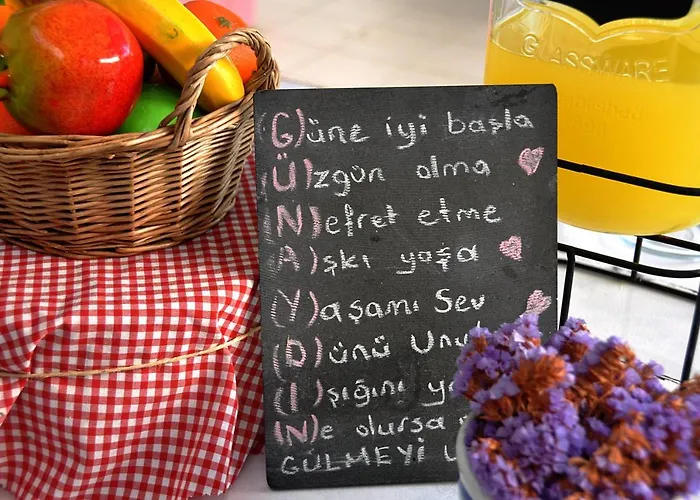 GLASSWARE
G)üne iyi başla
Ü)zgün olma
N)efret etme
A)şkı yaşa
Y)aşamı Sev
D)ünü
I)şığını
N)e olursa
GÜLMEYİ